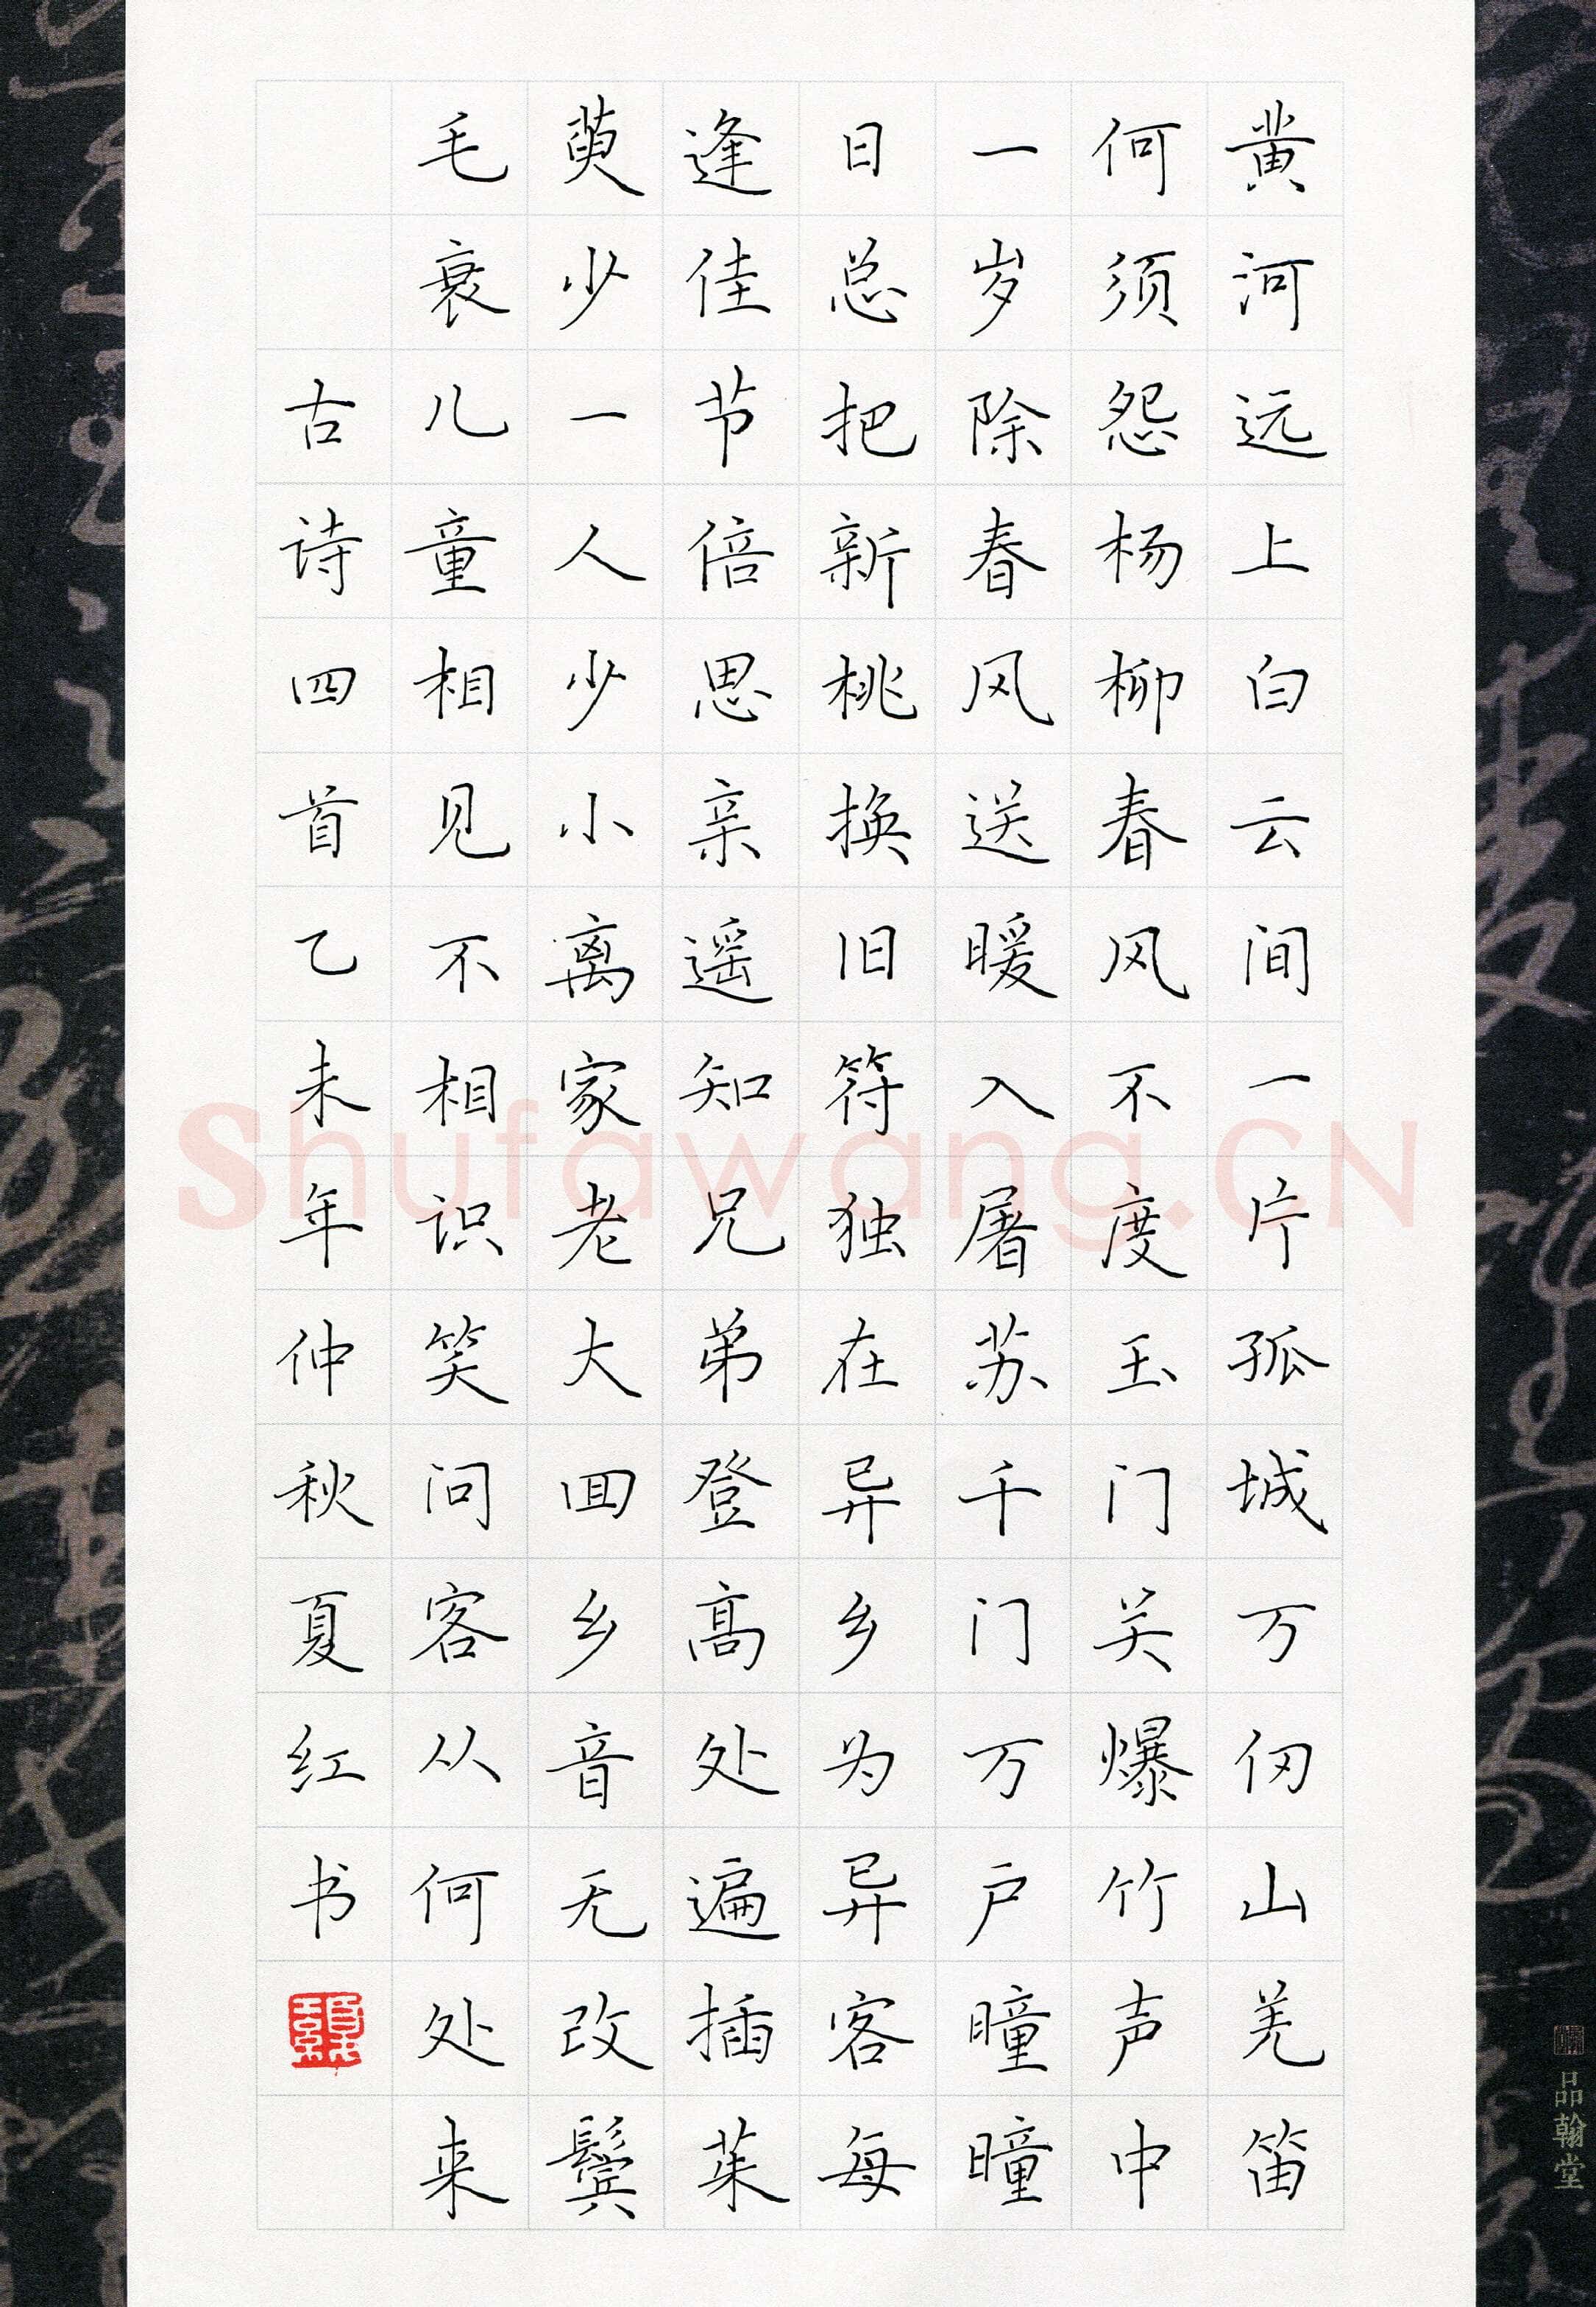 黄河远上白云间一片孤城万仞山羌笛
何须怨杨柳春风不度玉门关爆竹声中
一岁除春风送暖入屠苏千门万户曈曈
日总把新桃换旧符独在异乡为异客每
逢佳节倍思亲遥知兄弟登高处遍插茱
萸少一人少小离家老大回乡音无改鬓
毛衰儿童相见不相识笑问客从何处来
古诗四首乙未年仲秋夏红书
品翰堂
Shufawang.CN